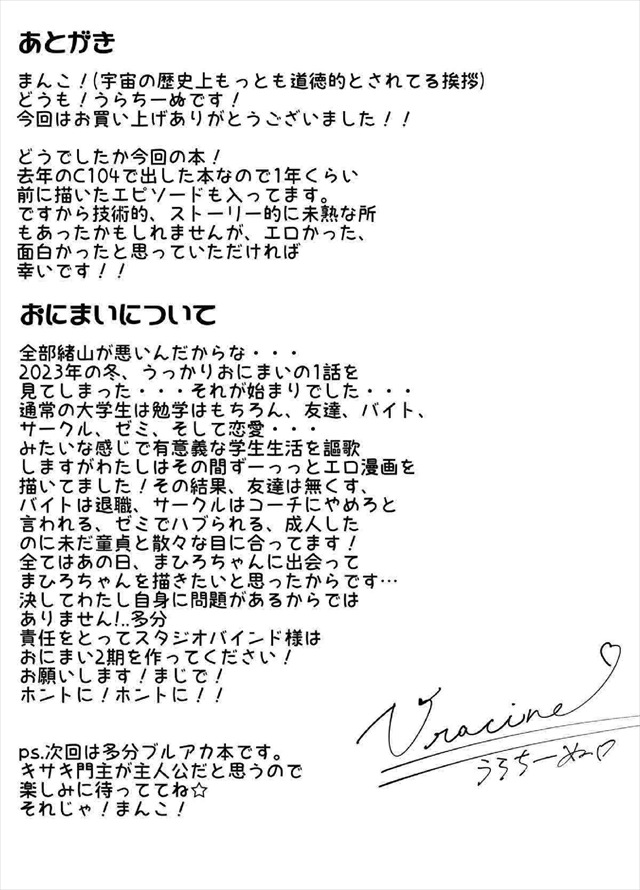 あとがき
まんこ！(宇宙の歴史上もっとも道徳的とされてる挨拶)
どうも！うらちーぬです！
今回はお買い上げありがとうございました！！
どうでしたか今回の本！
去年のC104で出した本なので1年くらい
前に描いたエピソードも入ってます。
ですから技術的、ストーリー的に未熟な所
もあったかもしれませんが、エロかった、
面白かったと思っていただければ
幸いです！！
おにまいについて
全部緒山が悪いんだからな・・・
2023年の冬、うっかりおにまいの1話を
見てしまった・・・それが始まりでした・・・
通常の大学生は勉学はもちろん、友達、バイト、
サークル、ゼミ、そして恋愛・・・
みたいな感じで有意義な学生生活を謳歌
しますがわたしはその間ずーっっとエロ漫画を
描いてました！その結果、友達は無くす、
バイトは退職、サークルはコーチにやめろと
言われる、ゼミでハブられる、成人した
のに未だ童貞と散々な目に合ってます！
全てはあの日、まひろちゃんに出会って
まひろちゃんを描きたいと思ったからです…
決してわたし自身に問題があるからでは
ありません!..多分
責任をとってスタジオバインド様は
おにまい2期を作ってください！
お願いします！まじで！
ホントに！ホントに！！
Vracine
うらちーぬ♡
ps.次回は多分ブルアカ本です。
キサキ門主が主人公だと思うので
楽しみに待っててね☆
それじゃ！まんこ！